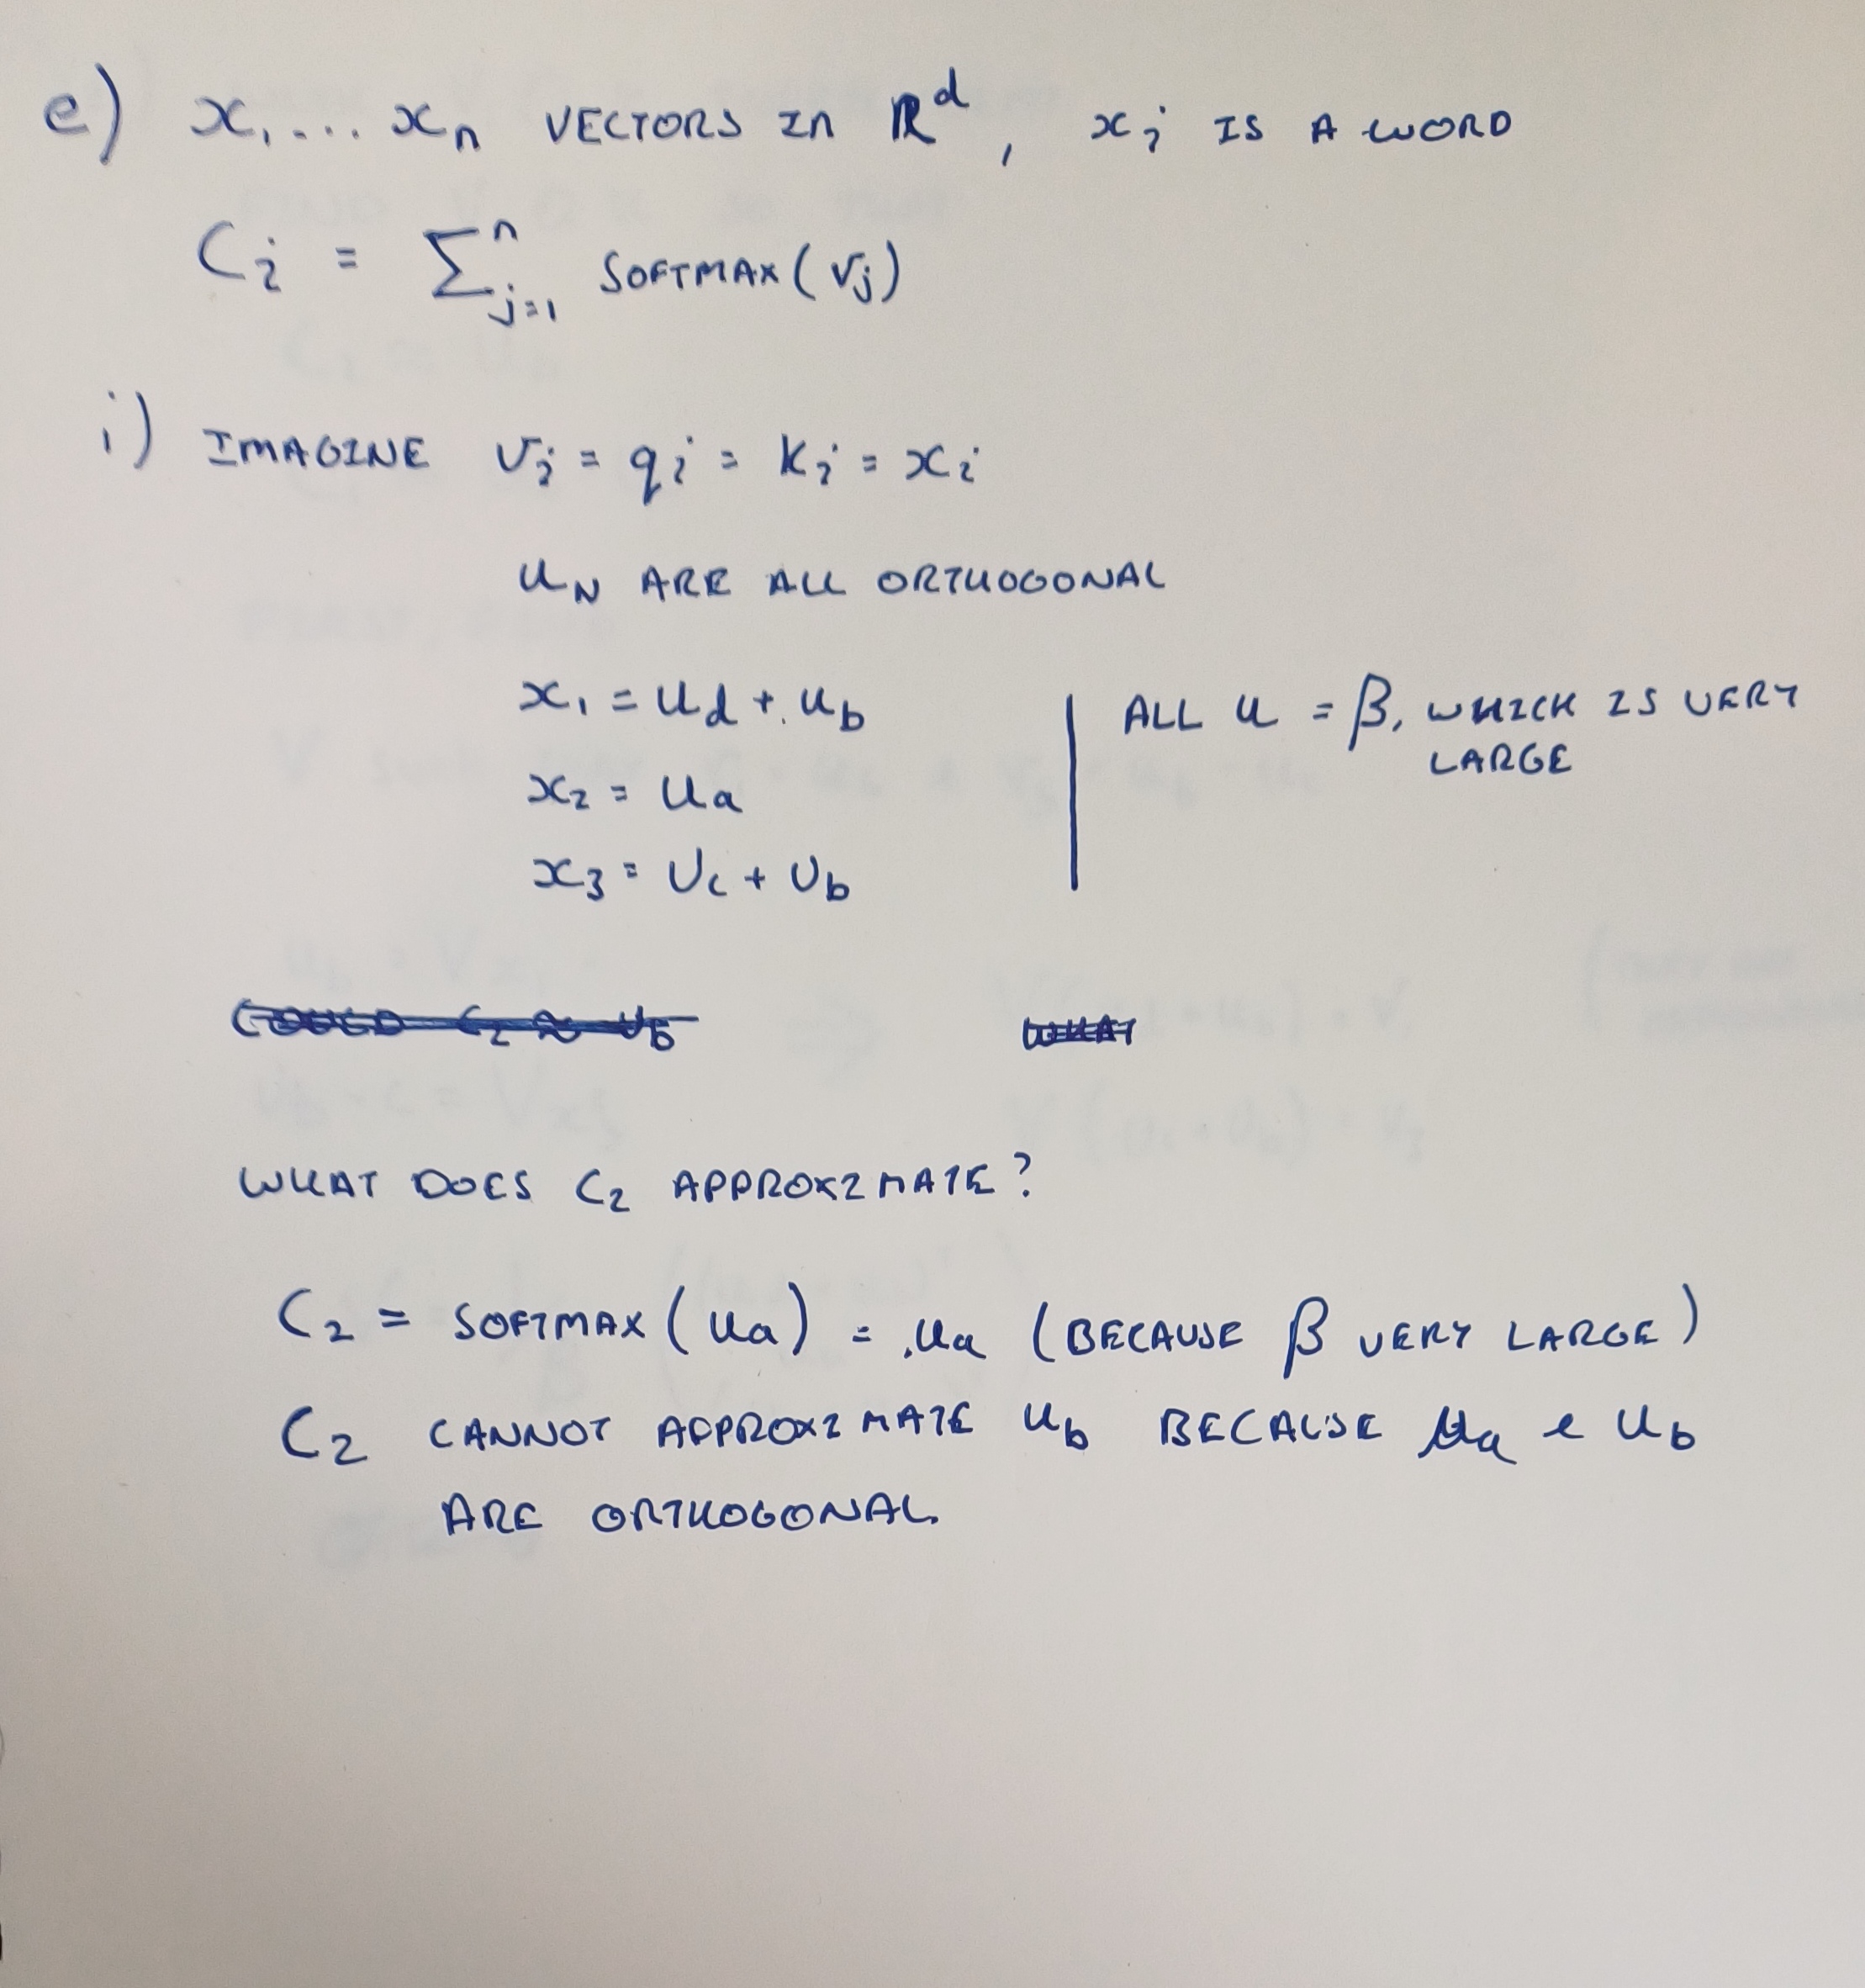 e) x₁ ... xₙ VECTORS IN ℝᵈ, xᵢ IS A WORD
Cᵢ = Σⁿⱼ₌₁ SOFTMAX(vⱼ)
i) IMAGINE vᵢ = qᵢ = kᵢ = xᵢ
u_N ARE ALL ORTHOGONAL
x₁ = u_d + u_b
ALL u = β, WHICH IS VERY
LARGE
x₂ = u_a
x₃ = u_c + u_b
COULD C₂ ≈ u_b
WHAT
WHAT DOES C₂ APPROXIMATE?
C₂ = SOFTMAX(u_a) = u_a (BECAUSE β VERY LARGE)
C₂ CANNOT APPROXIMATE u_b BECAUSE u_a e u_b
ARE ORTHOGONAL.